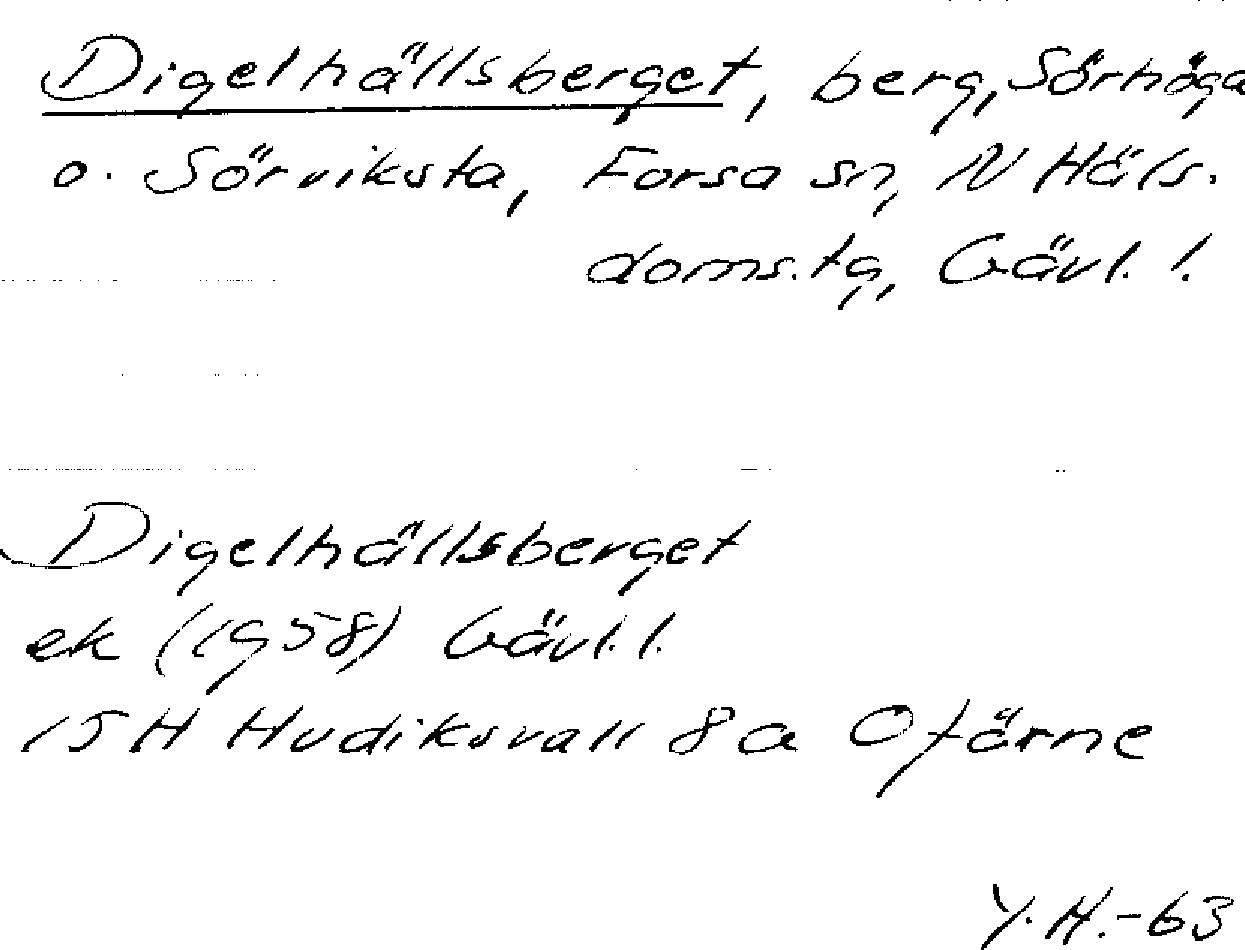 Digelhällsberget, berg, Sörhöga
o. Sörviksta, Forsa sn, N Häls.
doms.tg, Gävl. l.
Digelhällsberget
ek (1958) Gävl. l.
15H Hudiksvall 8a Ofärne
Y.H.-63